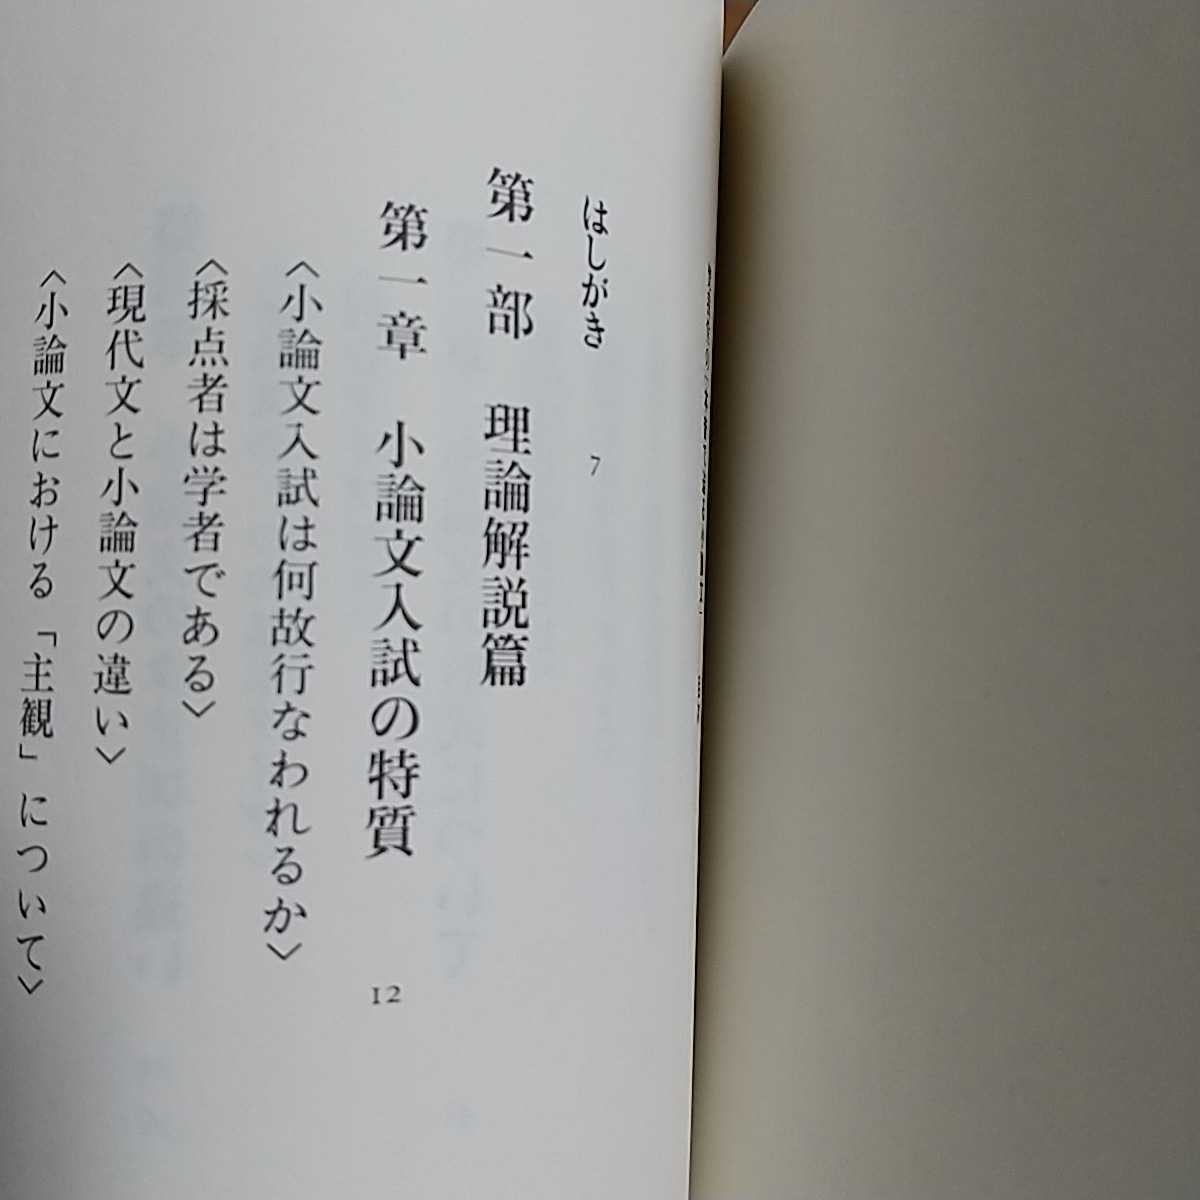 はしがき 7
第一部 理論解説篇
第一章 小論文入試の特質 12
〈小論文入試は何故行なわれるか〉
〈採点者は学者である〉
〈現代文と小論文の違い〉
〈小論文における「主観」について〉